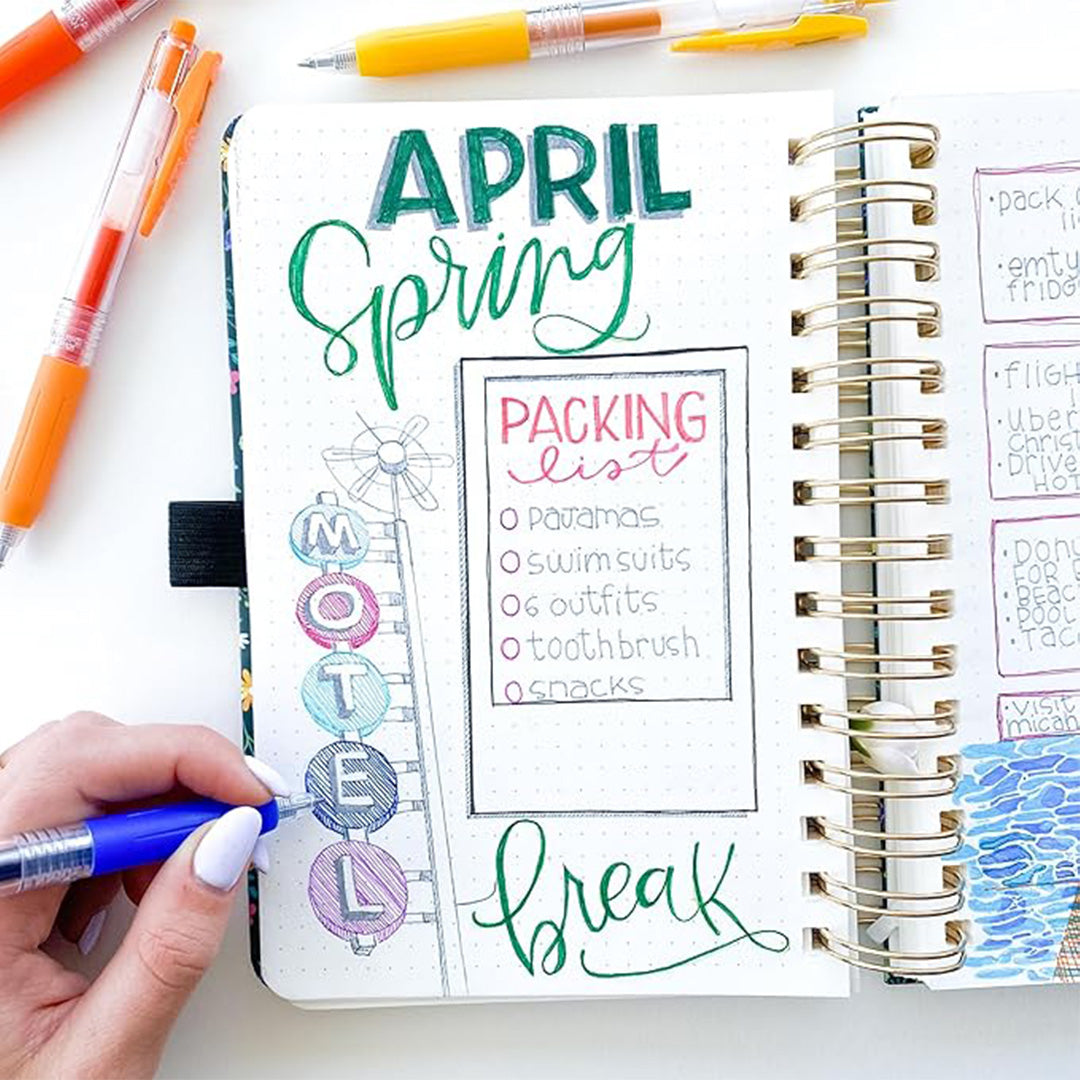 APRIL
Spring
PACKING
list
pajamas
swimsuits
6 outfits
toothbrush
snacks
M
O
T
E
L
break
•pack
•emty
fridg
•fligh
•Uber
christ
•Drive
HOT
•Donu
FOR
•BEAC
•POOL
•TAC
•Visit
micah